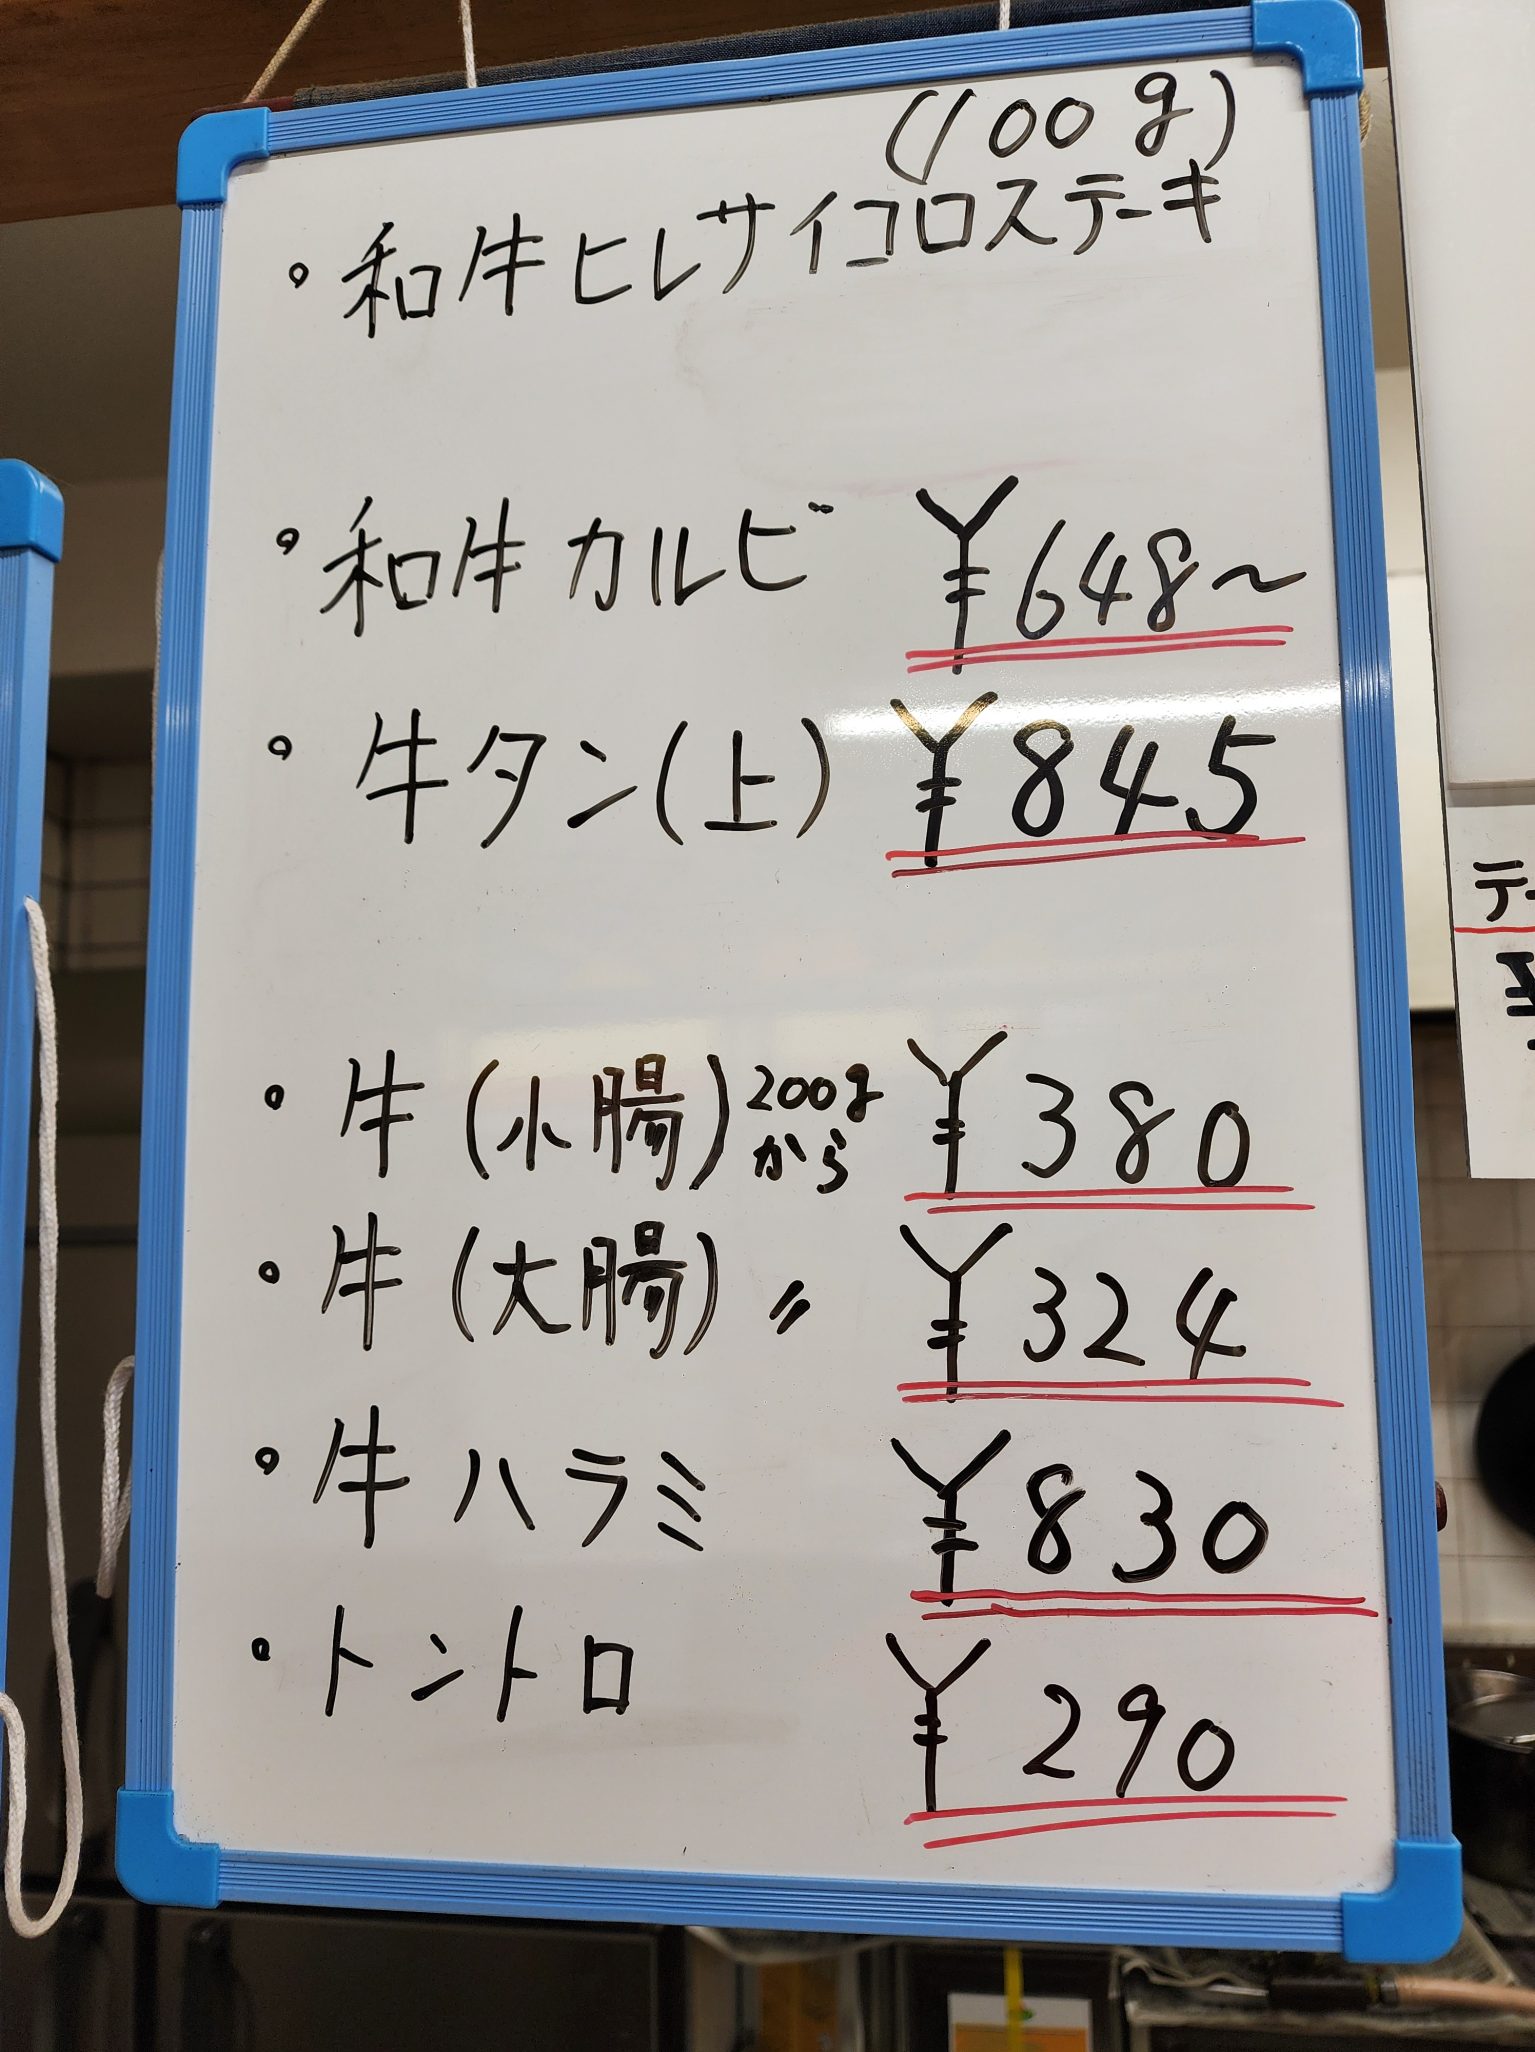 (100g)
・和牛ヒレサイコロステーキ
・和牛カルビ ¥648~
・牛タン(上) ¥845
・牛(小腸)200gから ¥380
・牛(大腸)〃 ¥324
・牛ハラミ ¥830
・トントロ ¥290
テー